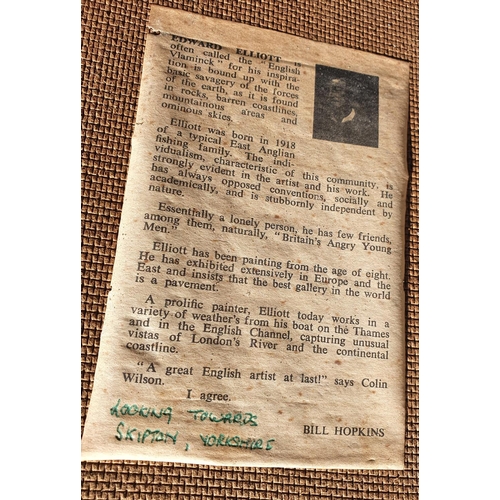 EDWARD ELLIOTT is
often called the "English
Vlaminck" for his inspira-
tion is bound up with the
basic savagery of the forces
of the earth, as it is found
in rocks, barren coastlines,
mountainous areas and
ominous skies.
Elliott was born in 1918
of a typical East Anglian
fishing family. The indi-
vidualism, characteristic of this community, is
strongly evident in the artist and his work. He
has always opposed conventions, socially and
academically, and is stubbornly independent by
nature.
Essentially a lonely person, he has few friends,
among them, naturally, "Britain's Angry Young
Men."
Elliott has been painting from the age of eight.
He has exhibited extensively in Europe and the
East and insists that the best gallery in the world
is a pavement.
A prolific painter, Elliott today works in a
variety of weather's from his boat on the Thames
and in the English Channel, capturing unusual
vistas of London's River and the continental
coastline.
"A great English artist at last!" says Colin
Wilson.
I agree.
BILL HOPKINS
LOOKING TOWARDS
SKIPTON, YORKSHIRE